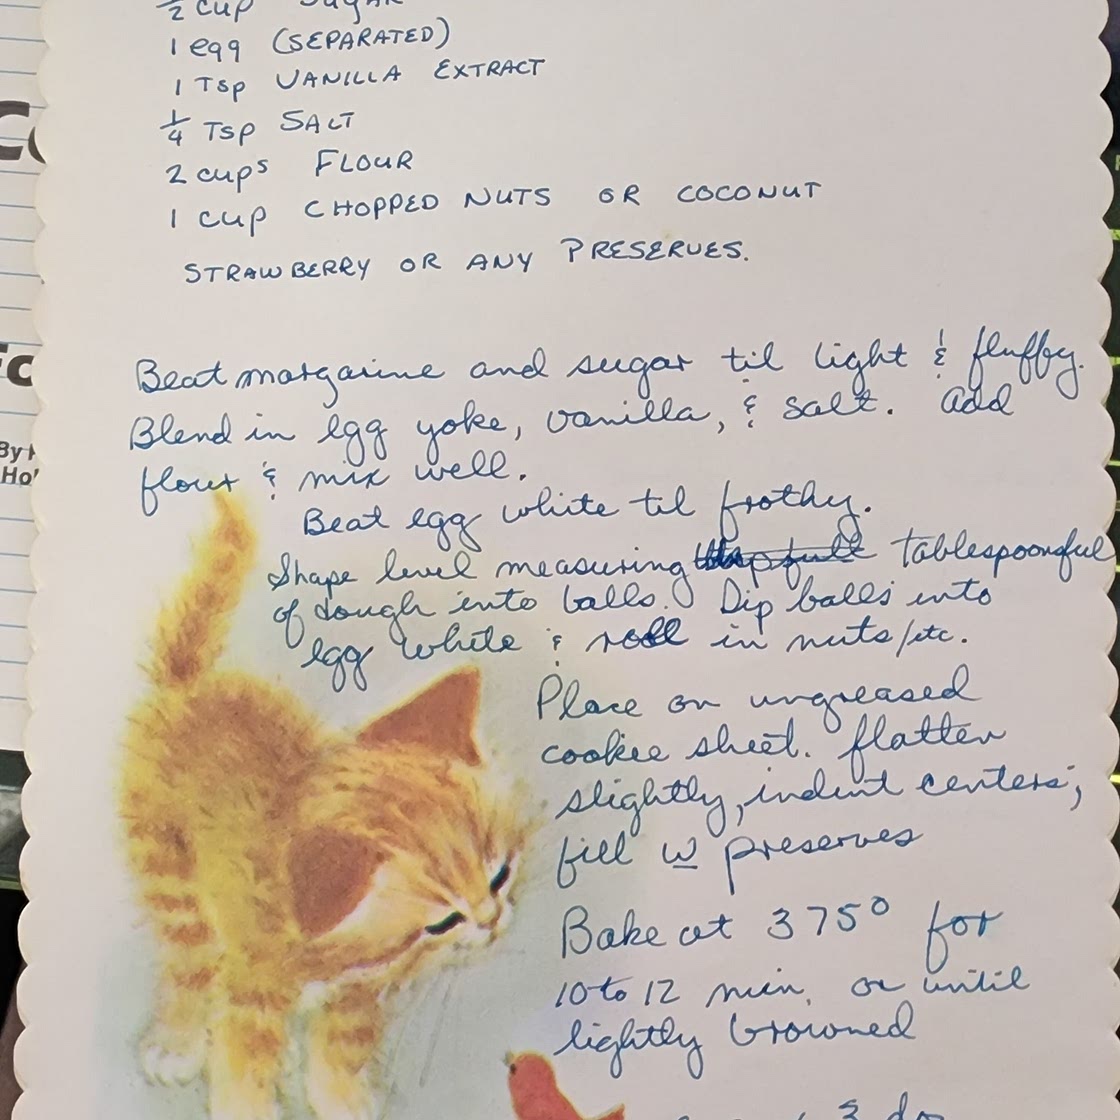 ½ cup sugar
1 egg (SEPARATED)
1 Tsp VANILLA EXTRACT
¼ Tsp SALT
2 cups FLOUR
1 cup CHOPPED NUTS OR COCONUT
STRAWBERRY OR ANY PRESERVES.
Beat margarine and sugar til light & fluffy.
Blend in egg yoke, vanilla, & salt. Add
flour & mix well.
Beat egg white til frothy.
Shape level measuring tablespoonsful
of dough into balls. Dip balls into
egg white & roll in nuts/etc.
Place on ungreased
cookie sheet. flatten
slightly, indent centers;
fill w preserves
Bake at 375° for
10 to 12 min. or until
lightly browned